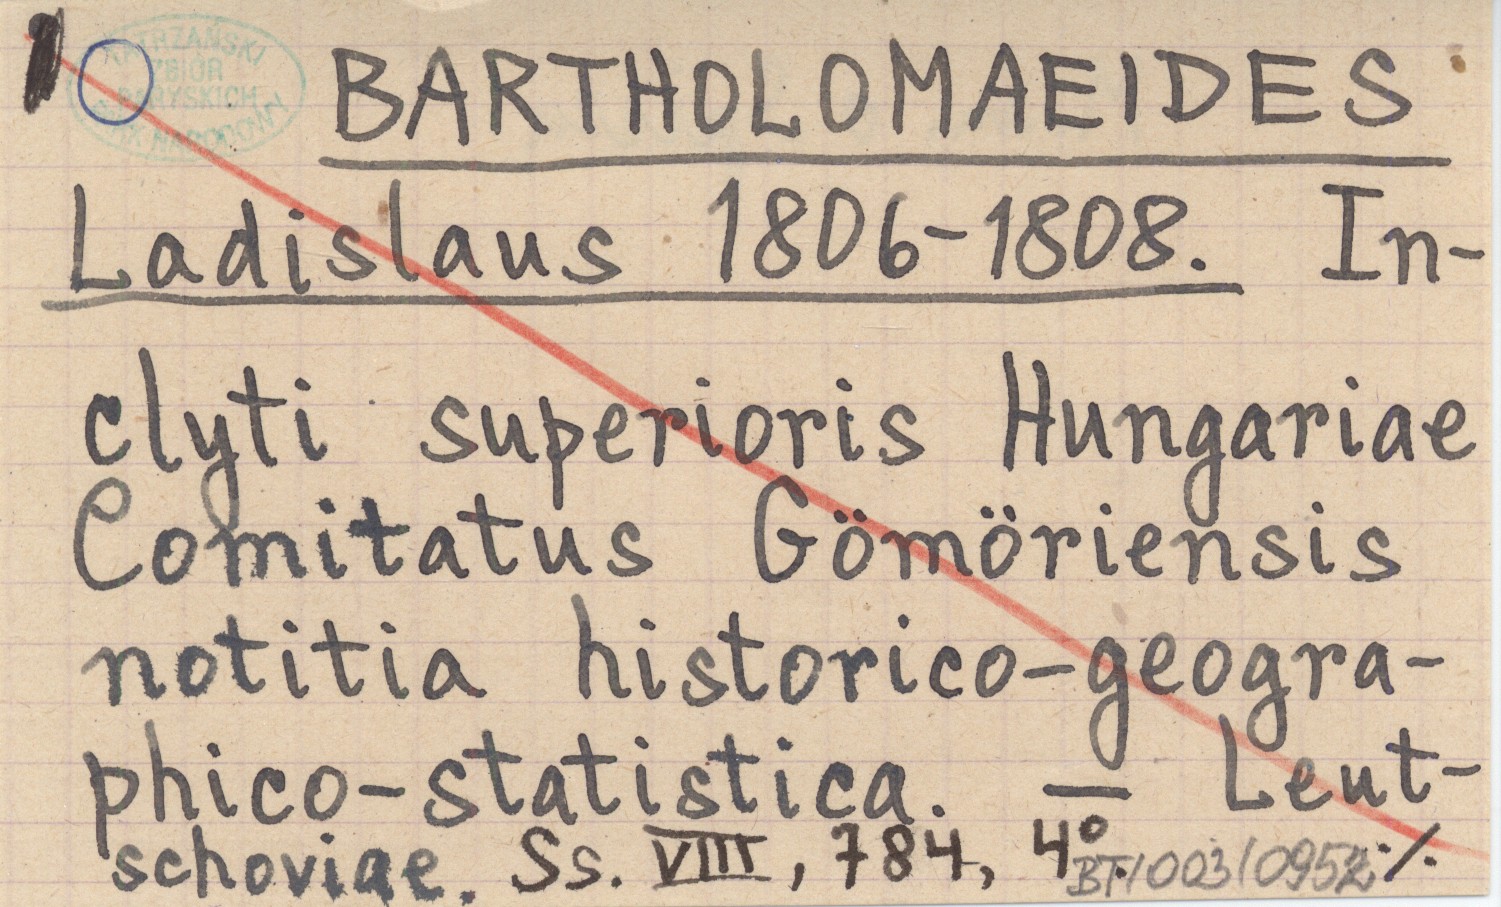 TATRZAŃSKI
ZBIÓR
PARYSKICH
PARK NARODOWY
BARTHOLOMAEIDES
Ladislaus 1806-1808. In-
clyti superioris Hungariae
Comitatus Gömöriensis
notitia historico-geogra-
phico-statistica. — Leut-
schoviae. Ss. VIII, 784, 4º. ./.
BT/003/0952